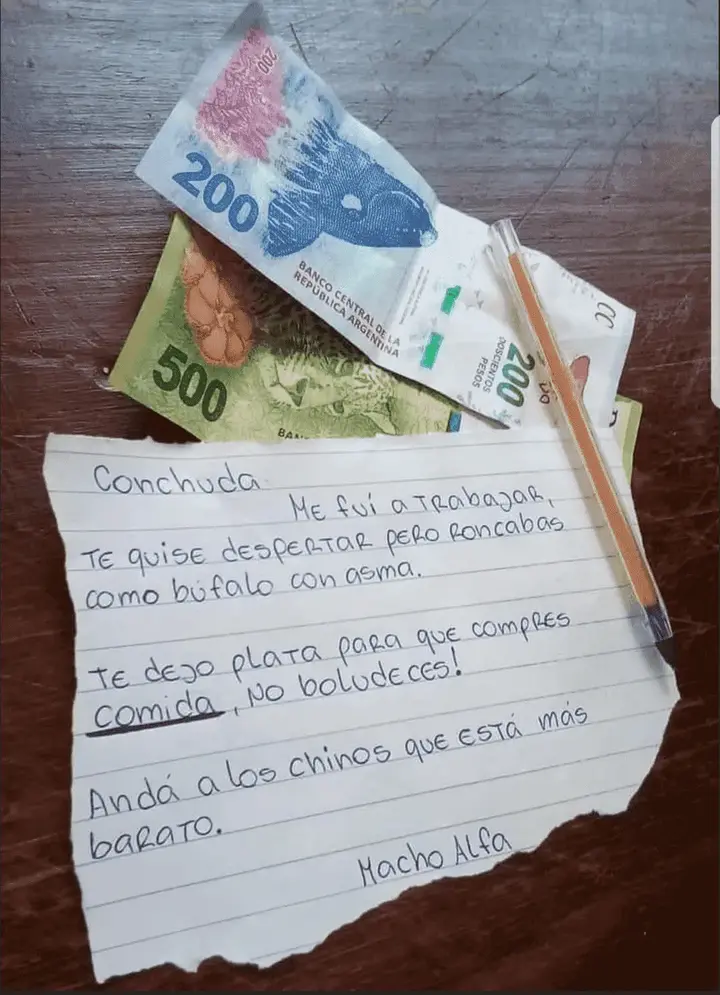 200
200
BANCO CENTRAL DE LA
REPÚBLICA ARGENTINA
200
DOSCIENTOS
PESOS
500
BAN
Conchuda
Me fuí a trabajar,
te quise despertar pero roncabas
como búfalo con asma.
te dejo plata para que compres
comida, no boludeces!
Andá a los chinos que está más
barato.
Macho Alfa